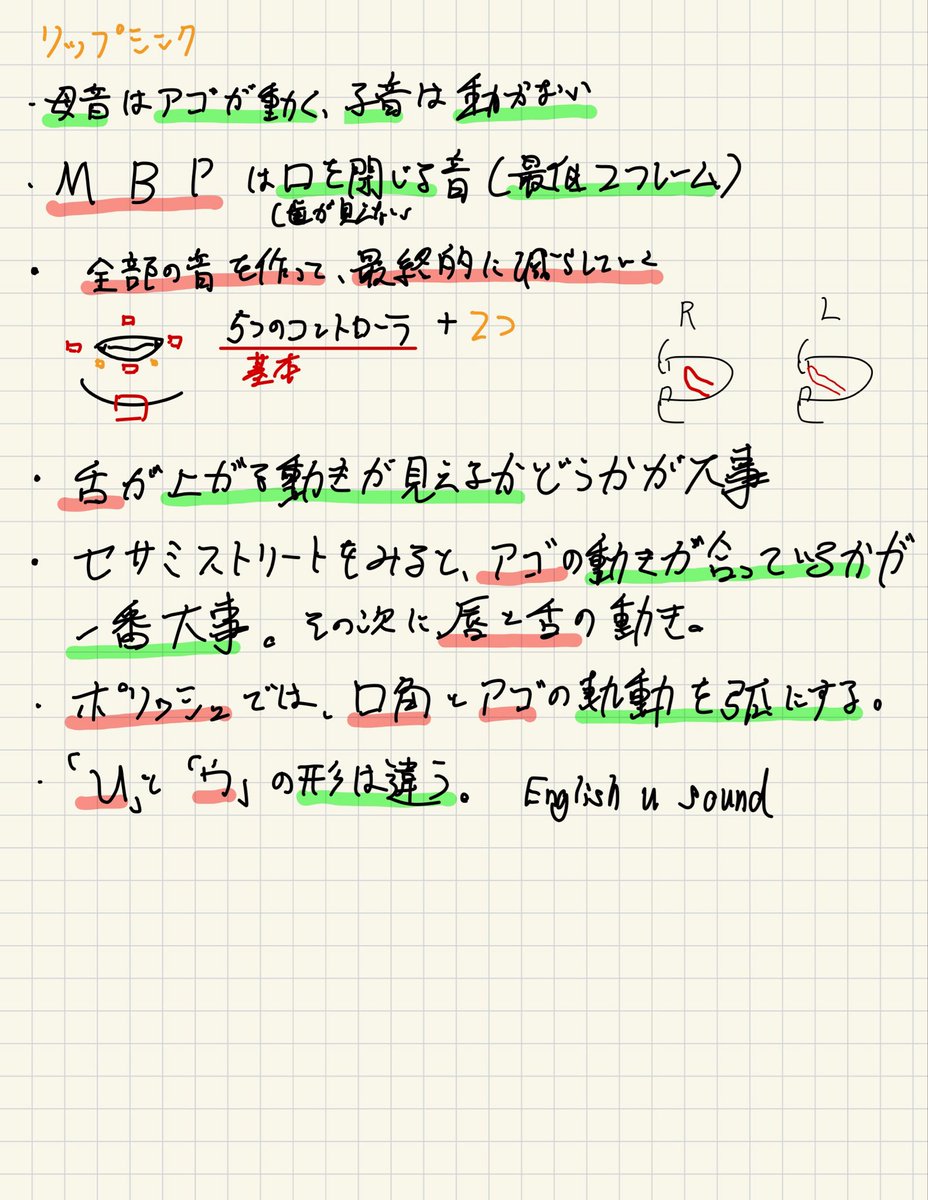 リップシンク
・母音はアゴが動く、子音は動かない
・M B P は口を閉じる音(最低2フレーム)
(歯が見えない
・全部の音を作って、最終的に減らしていく
5つのコントローラ + 2つ
基本
R L
・舌が上がる動きが見えるかどうかが大事
・セサミストリートをみると、アゴの動きが合っているかが
一番大事。その次に唇と舌の動き。
・ポリッシュでは、口角とアゴの軌動を弧にする。
・「U」と「ウ」の形は違う。 English u sound